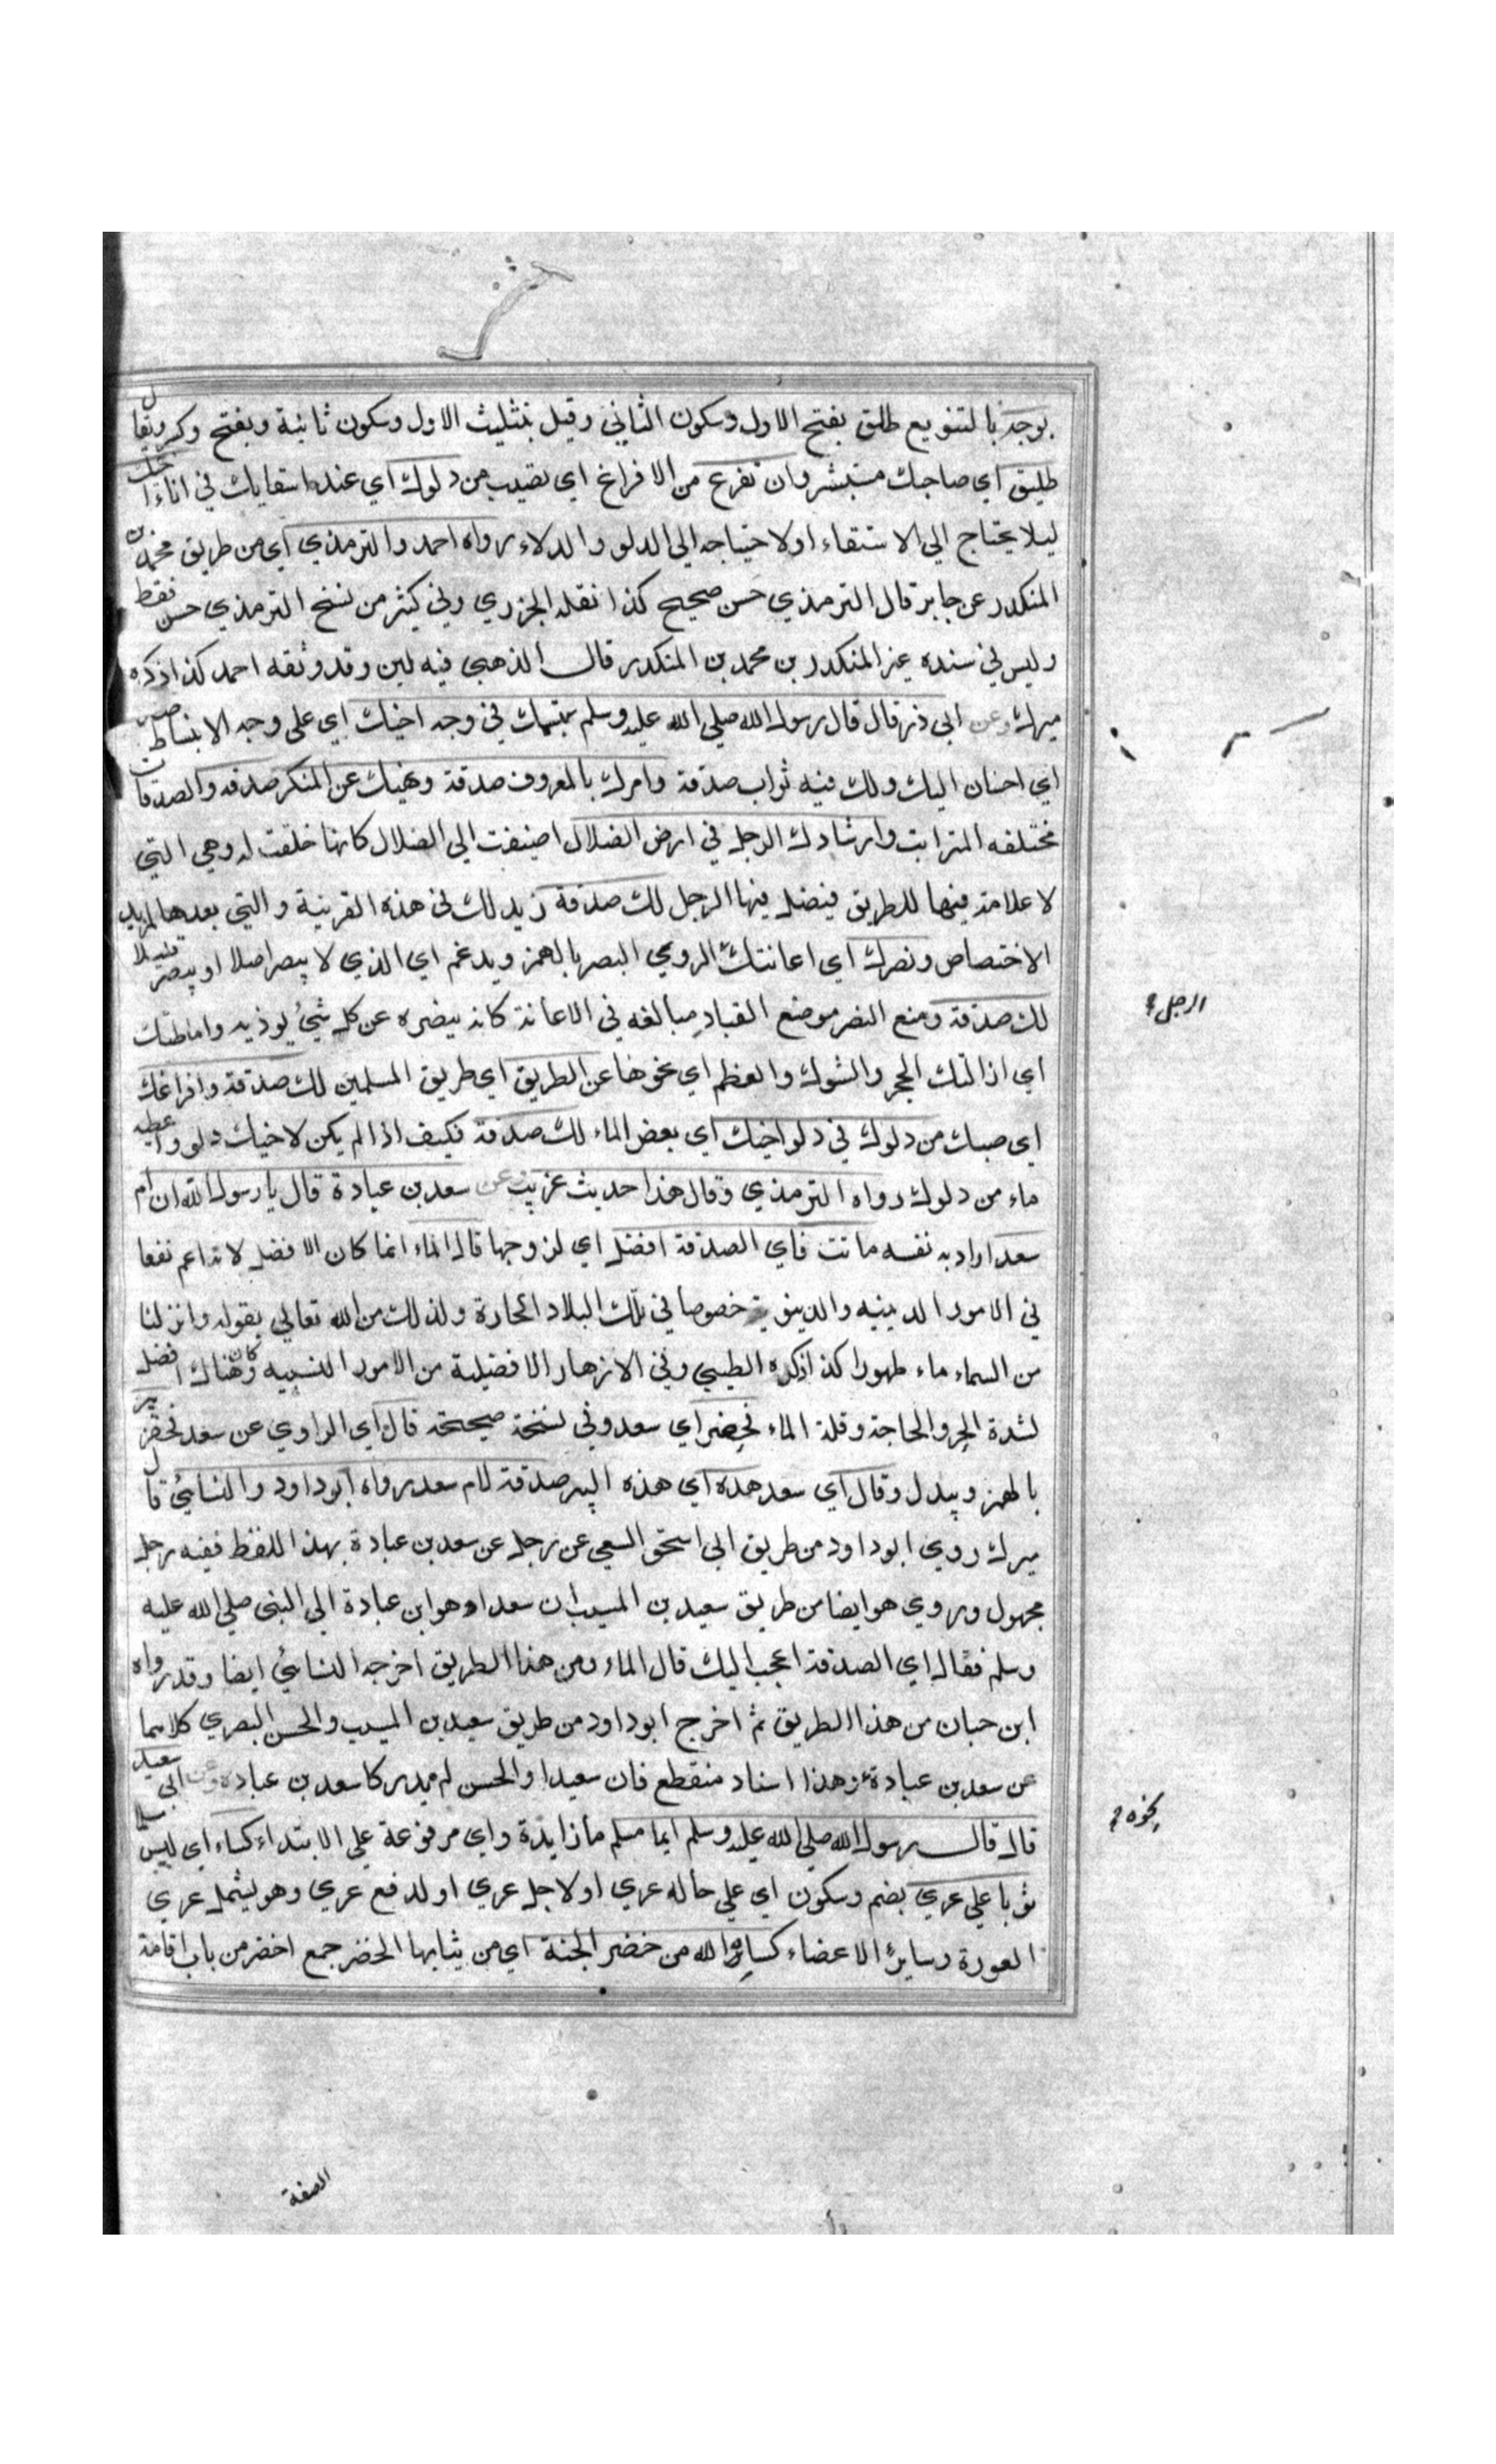 بوجه بالتنويع طلق بفتح الاول وسكون الثاني وقيل بتثليث الاول وسكون ثانية وبفتح وكسر ويقال
طليق اي صاحبك مستبشر وان تفرغ من الافراغ اي تصيب من دلوك اي عند استقايك في اناء اخيك
ليلا يحتاج الي الاستقاء اولاحتياجه الي الدلو والدلاء رواه احمد والترمذي اي من طريق محمد بن
المنكدر عن جابر قال الترمذي حسن صحيح كذا نقله الجزري وفي كثير من نسخ الترمذي حسن فقط
وليس في سنده غير المنكدر بن محمد بن المنكدر قال الذهبي فيه لين وقد وثقه احمد كذا ذكره
ميرك وعن ابي ذر قال قال رسول الله صلي الله عليه وسلم تبسمك في وجه اخيك اي علي وجه الانبساط صدقة
اي احسان اليك ولك فيه ثواب صدقة وامرك بالمعروف صدقة ونهيك عن المنكر صدقه والصدقات
مختلفه المراتب وارشادك الرجل في ارض الضلال اضيفت الي الضلال كانها خلقت له وهي التي
لا علامة فيها للطريق فيضل فيها الرجل لك صدقة زيد لك في هذه القرينة والتي بعدها لمزيد
الاختصاص ونصرك اي اعانتك الردي البصر بالهمز ويدغم اي الذي لا يبصر اصلا او يبصر قليلا
لك صدقة وضع النصر موضع القياد مبالغه في الاعانة كانه ينصره عن كل شئ يوذيه واماطتك
اي ازالتك الحجر والشوك والعظم اي نحوها عن الطريق اي طريق المسلمين لك صدقة وافراغك
اي صبك من دلوك في دلو اخيك اي بعض الماء لك صدقة فكيف اذا لم يكن لاخيك دلو واعطيه
ماء من دلوك رواه الترمذي وقال هذا حديث غريب وعن سعد بن عبادة قال يا رسول الله ان ام
سعد اراد به نفسه ماتت فاي الصدقة افضل اي لزوجها قال الماء انما كان الافضل لانه اعم نفعا
في الامور الدينيه والدينوية خصوصا في تلك البلاد الحارة ولذلك من الله تعالي بقوله وانزلنا
من السماء ماء طهورا كذا ذكره الطيبي وفي الازهار الافضيلية من الامور النسبيه وكان هناك افضل
لشدة الحر والحاجة وقلة الماء فحفر اي سعد وفي نسخة صحيحة قال اي الراوي عن سعد فحفر بير
بالهمز ويبدل وقال اي سعد هذه اي هذه البير صدقة لام سعد رواه ابو داود والنسائي قال
ميرك روي ابو داود من طريق ابي اسحق السبعي عن رجل عن سعد بن عبادة بهذا اللفظ ففيه رجل
مجهول وروي هو ايضا من طريق سعيد بن المسيب ان سعدا وهو ابن عبادة الي النبي صلي الله عليه
وسلم فقال اي الصدقة اعجب اليك قال الماء ومن هذا الطريق اخرجه النسائي ايضا وقد رواه
ابن حبان من هذا الطريق ثم اخرج ابو داود من طريق سعيد بن المسيب والحسن البصري كلاهما
عن سعد بن عبادة وهذا اسناد منقطع فان سعيدا والحسن لم يدركا سعد بن عبادة وعن ابي سعيد
قال قال رسول الله صلي الله عليه وسلم ايما مسلم ما زايدة واي مرفوعة علي الابتداء كساء اي لبس مسلما
ثوبا علي عري بضم وسكون اي علي حاله عري او لاجل عري او لدفع عري وهو يشمل عري
العورة وساير الاعضاء كساه الله من خضر الجنة اي من ثيابها الخضر جمع اخضر من باب اقامة
الرجل
نحوه
الصفة